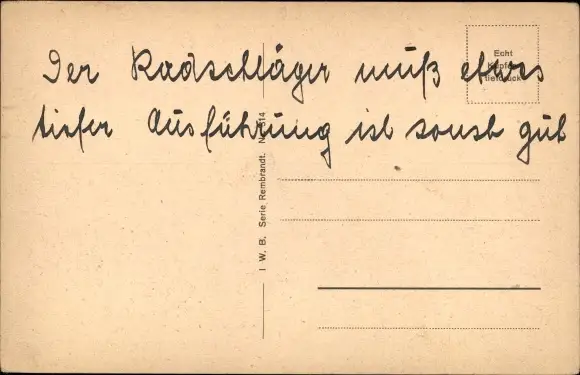 Der Radschläger muß etwas
tiefer Ausführung ist sonst gut
Echt
Kupfer
tiefdruck
I W. B. Serie Rembrandt. N 514